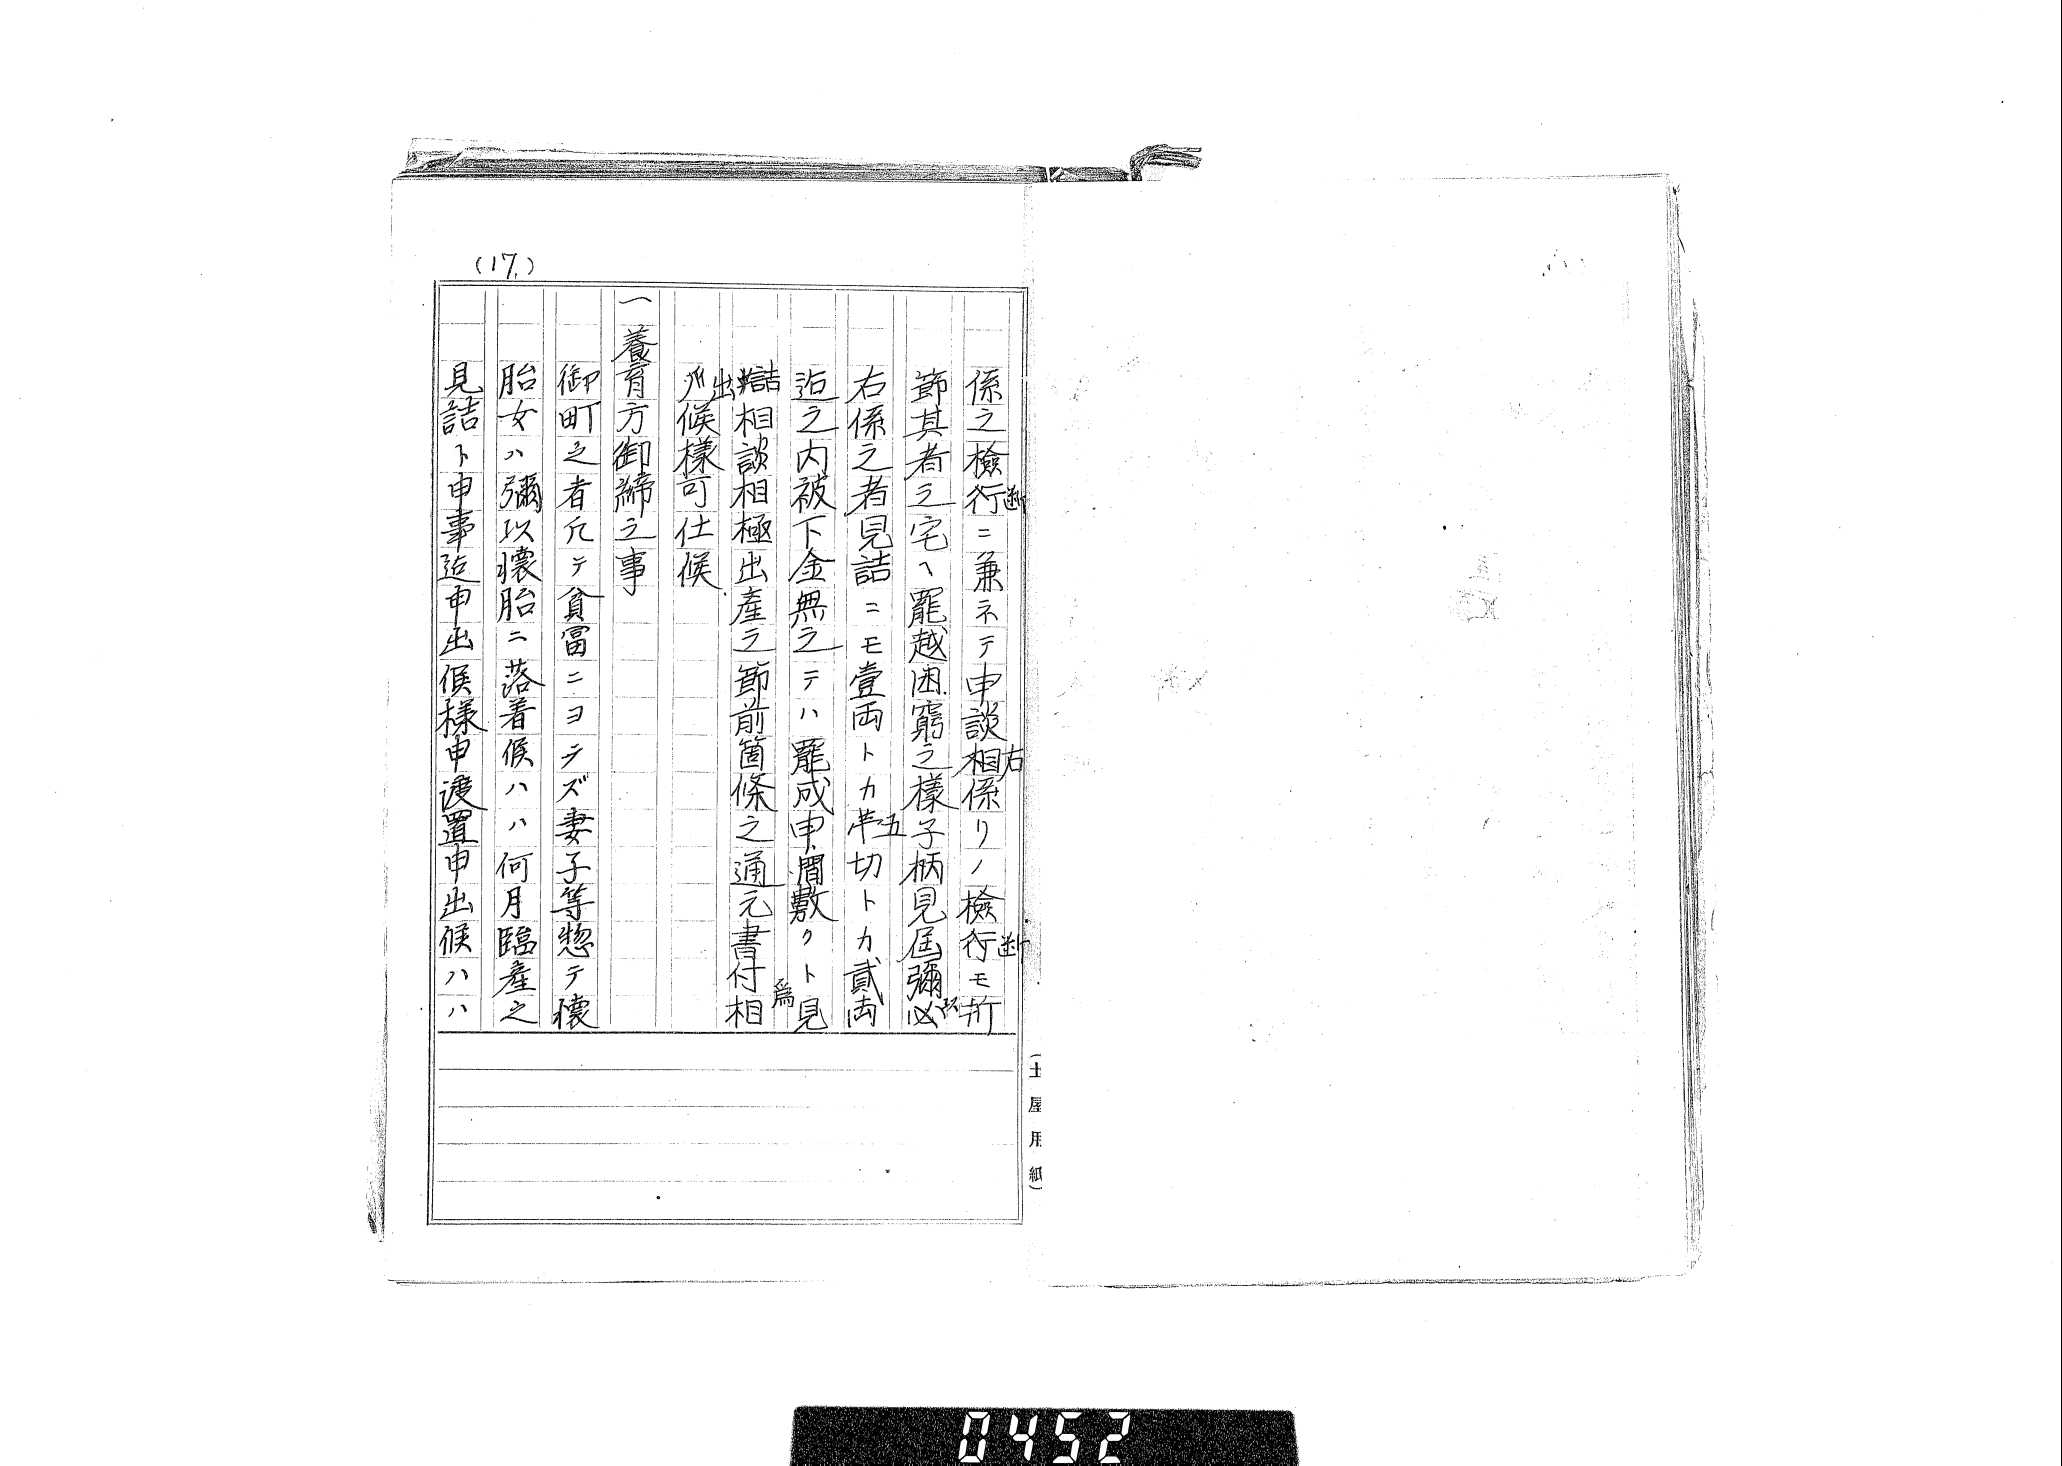 (17.)
係之檢行ニ兼ネテ申談相係リノ檢行モ折
断
右
断
節其者之宅ヘ罷越困窮之樣子柄見届彌必
以
右係之者見詰ニモ壹両トカ半切トカ貳両
五
迠之内被下金無之テハ罷成申間敷クト見
為
詰相談相極出產之節前箇條之通元書付相
出
候樣可仕候
一養育方御締之事
御町之者凡テ貧冨ニヨラズ妻子等惣テ懐
胎女ハ彌以懐胎ニ落着候ハハ何月臨產之
見詰ト申事迠申出候様申渡置申出候ハハ
(土屋用紙)
0452